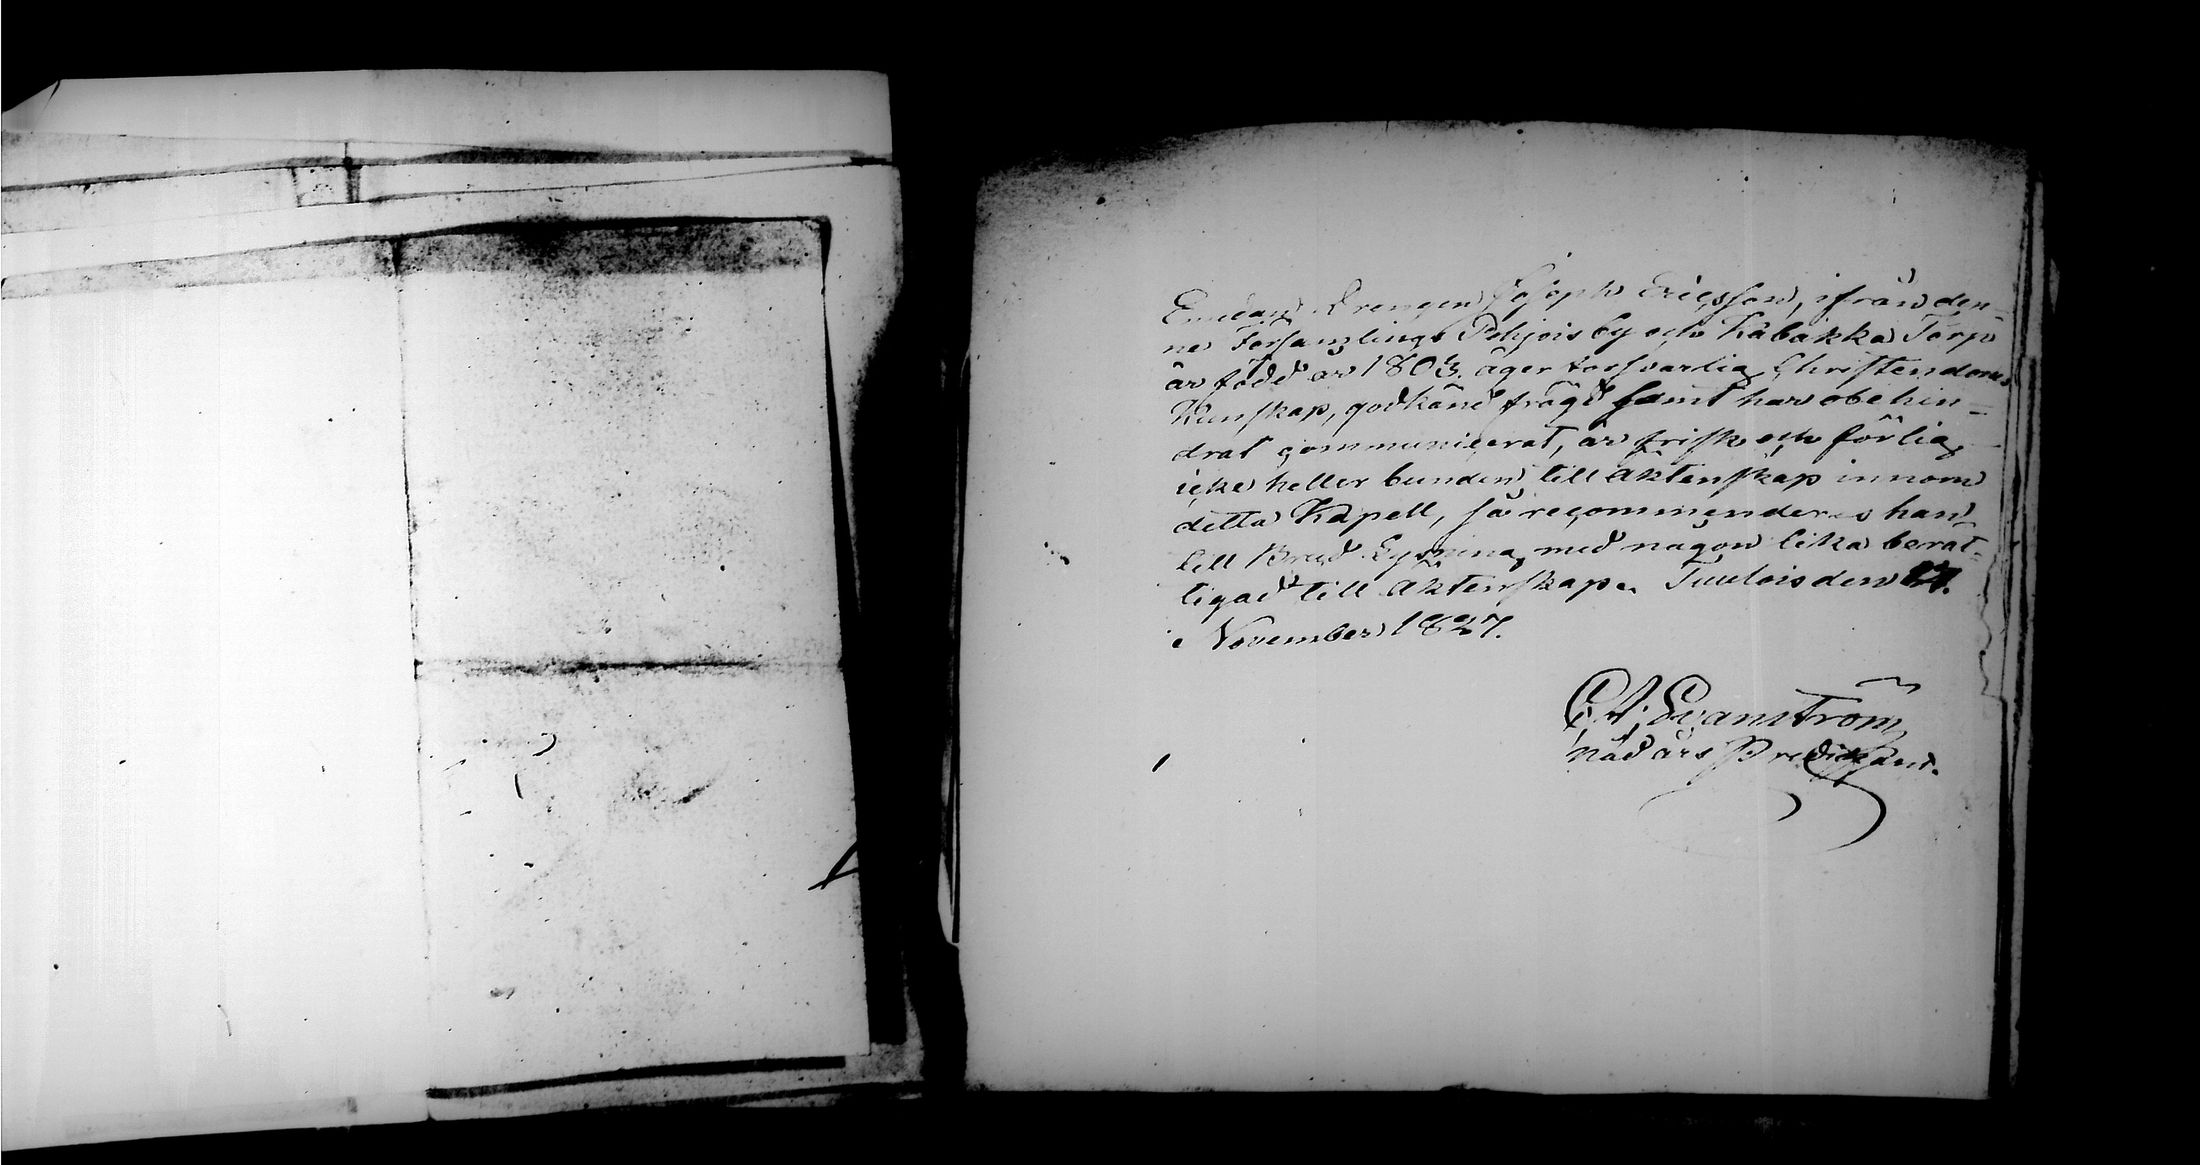 Emedan Drengen Joseph Ericsson, ifrån den-
ne Församlings Pohjois by och Kabakka Torp
är född år 1803. äger försvarlig Christendoms
Kunskap, godkänd frägd samt har obehin-
drat communicerat, är frisk och förlig,
icke heller bunden till Äktenskap innom
detta Kapell, så recommenderas han
till Brud Lysning med någon lika berät-
tigad till Äktenskap. Tuulois den
November 1827.
Svanström
nåd års Predikant.